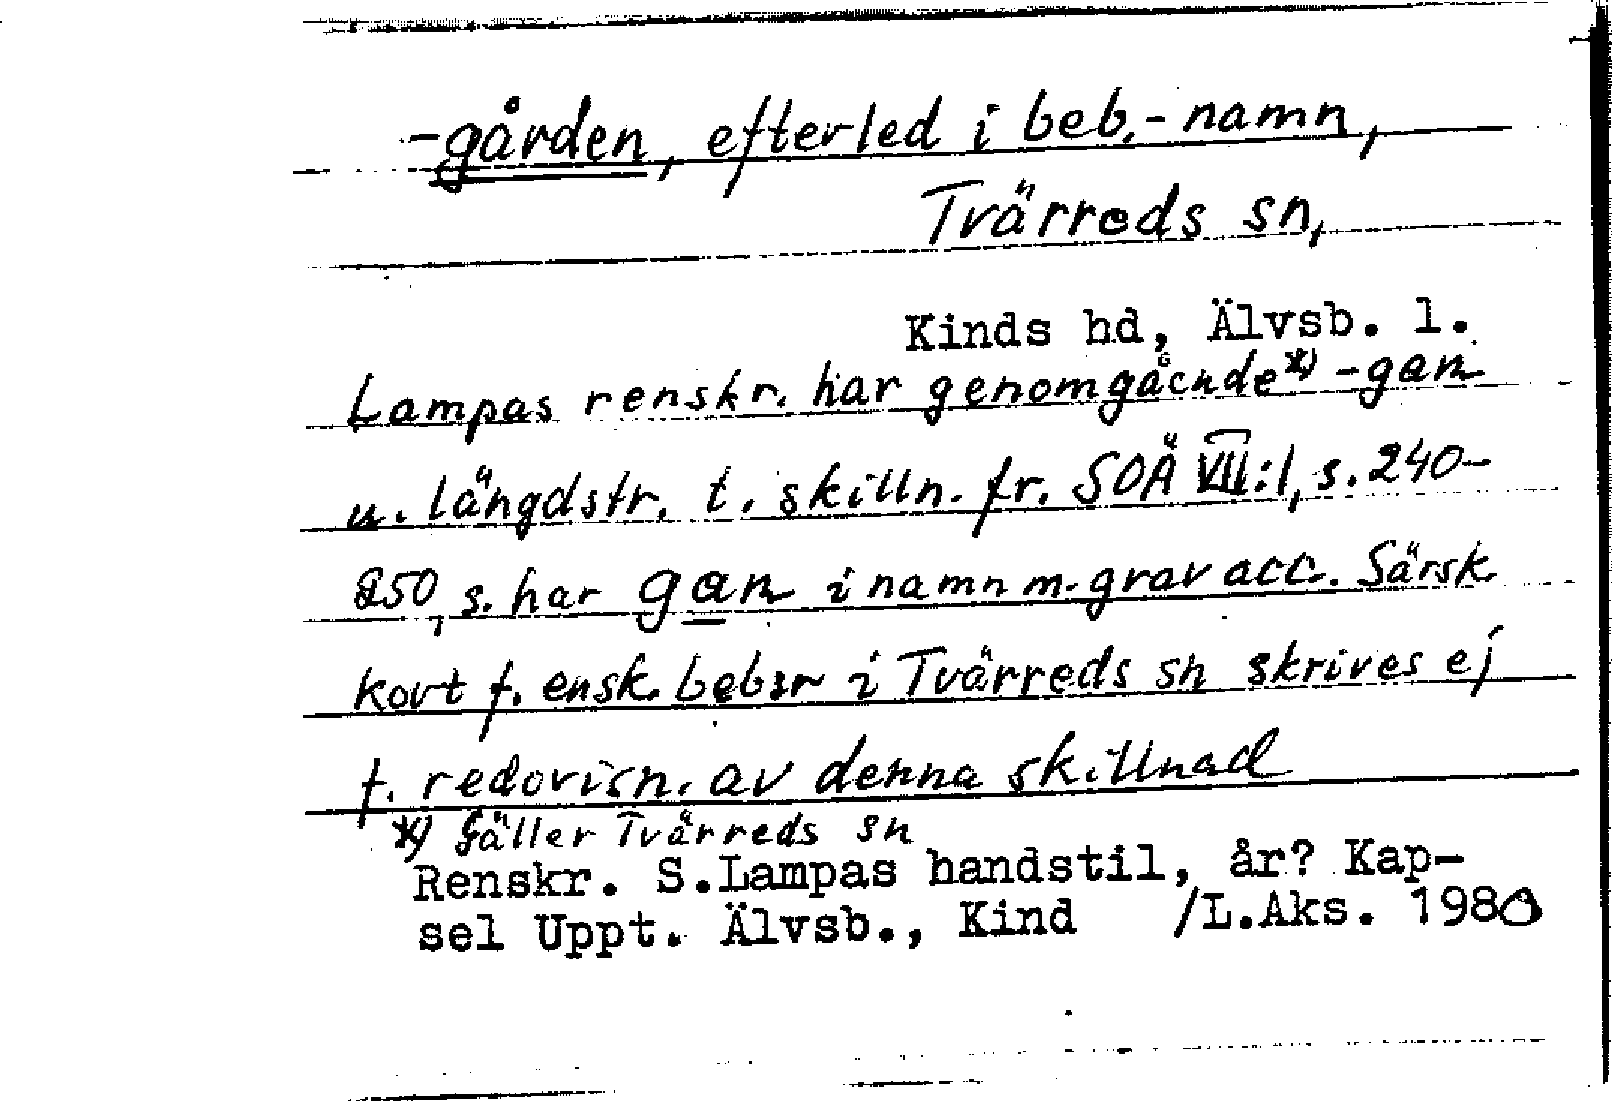 -gården, efterled i beb.-namn,
Tvärreds sn,
Kinds hd, Älvsb. l.
Lampas renskr. har genomgående *) -gan
u. längdstr. t. skilln. fr. SOÄ VIII:1, s. 240-
250, s. har gan i namn m. grav acc. Särsk.
kort f. ensk. bebsr i Tvärreds sn skrives ej
f. redovisn. av denna skillnad
*) Gäller Tvärreds sn
Renskr. S.Lampas handstil, år? Kap-
sel Uppt. Älvsb., Kind /L.Aks. 1980